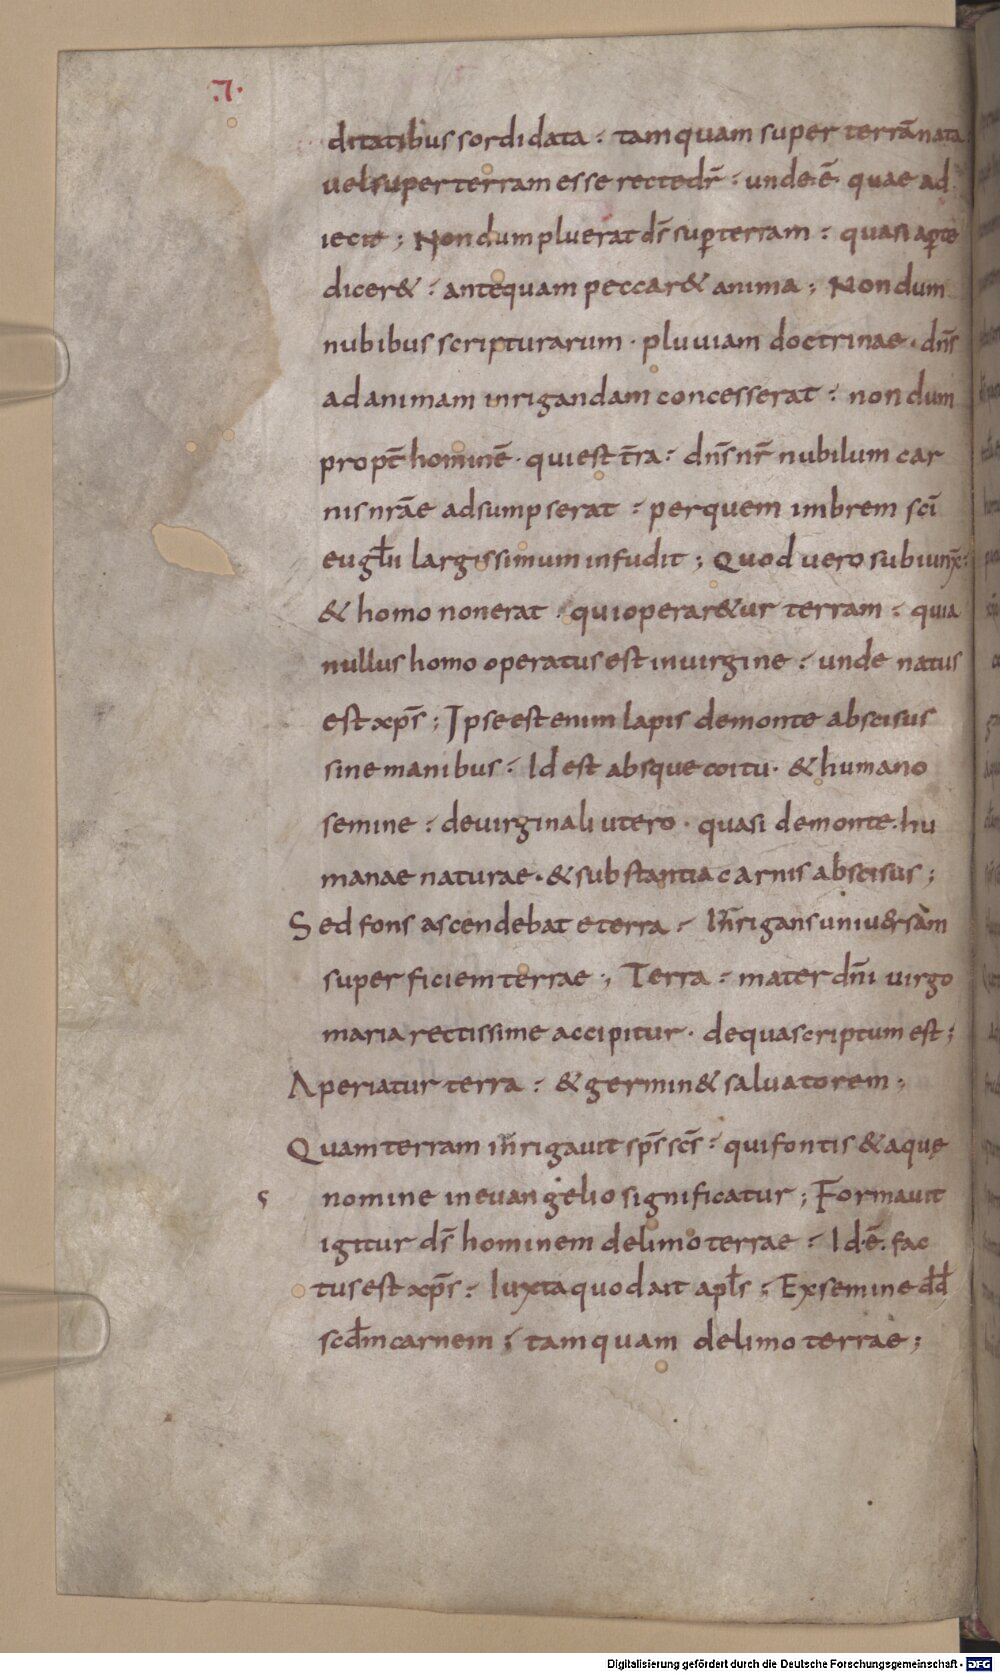 7.
ditatibus sordidata : tamquam super terrā nata
uel super terram esse recte dr̄ : unde ē quae ad
iecit ; Non dum pluerat ds̄ sup̱ terram : quasi ap̱te
dicer& : antequam peccar& anima ; Non dum
nubibus scripturarum · pluuiam doctrinae · dn̄s
ad animam inrigandam concesserat : non dum
propt̄ hominē · qui est t̄ra : dn̄s nr̄ nubilum car
nis nrāe adsumpserat : per quem imbrem sc̄i
eugl̄ii largissimum infudit ; Quod uero subiunx̄ :
& homo non erat · qui operar&ur terram : quia
nullus homo operatus est in uirgine : unde natus
est xp̄s ; Ipse est enim lapis de monte abscisus
sine manibus : Id est absque coitu · & humano
semine : de uirginali utero · quasi de monte · hu
manae naturae · & substantia carnis abscisus ;
Sed fons ascendebat e terra : Inrigans uniu&rsam
super ficiem terrae ; Terra : mater dn̄i uirgo
maria rectissime accipitur · de qua scriptum est ;
Aperiatur terra : & germin& saluatorem ;
Quam terram inrigauit sp̄s sc̄s : qui fontis & aquę
s nomine in euangelio significatur ; Formauit
igitur ds̄ hominem de limo terrae : Id · ē · fac
tus est xp̄s : Iuxta quod ait apl̄s ; Ex semine dd̄
scd̄m carnem ; tamquam de limo terrae ;
Digitalisierung gefördert durch die Deutsche Forschungsgemeinschaft - DFG